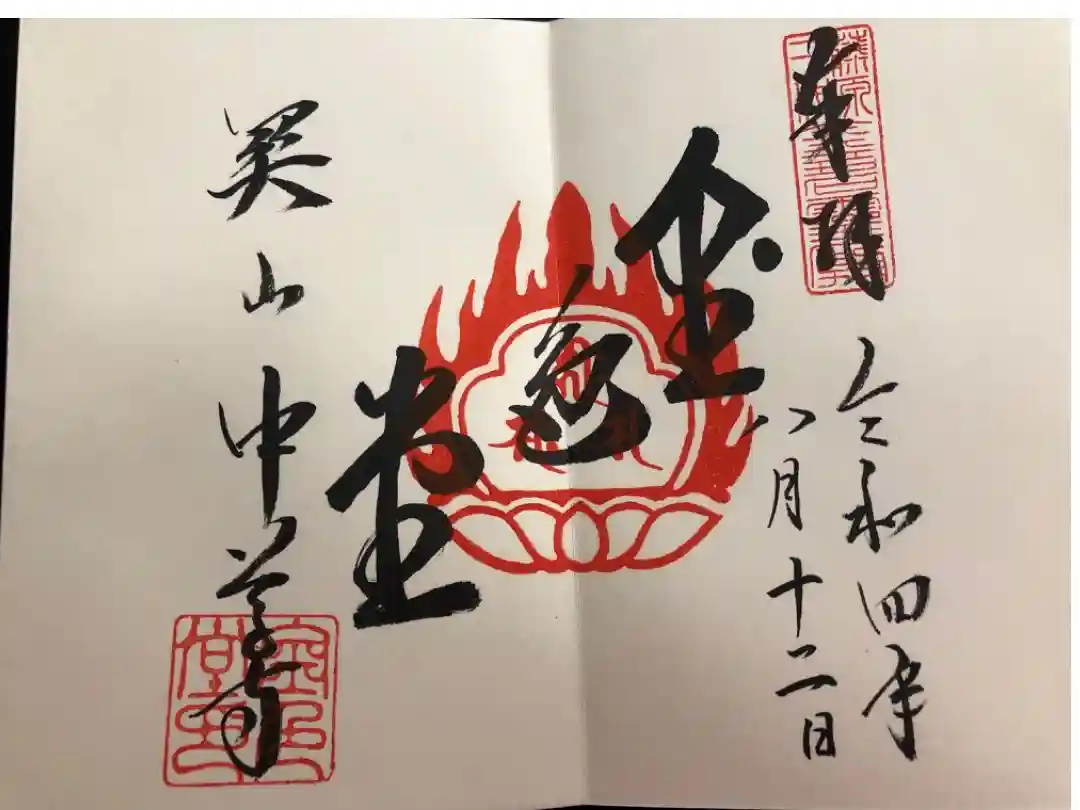 奉拝
令和四年
八月十二日
金色堂
関山中尊寺
金色
堂印